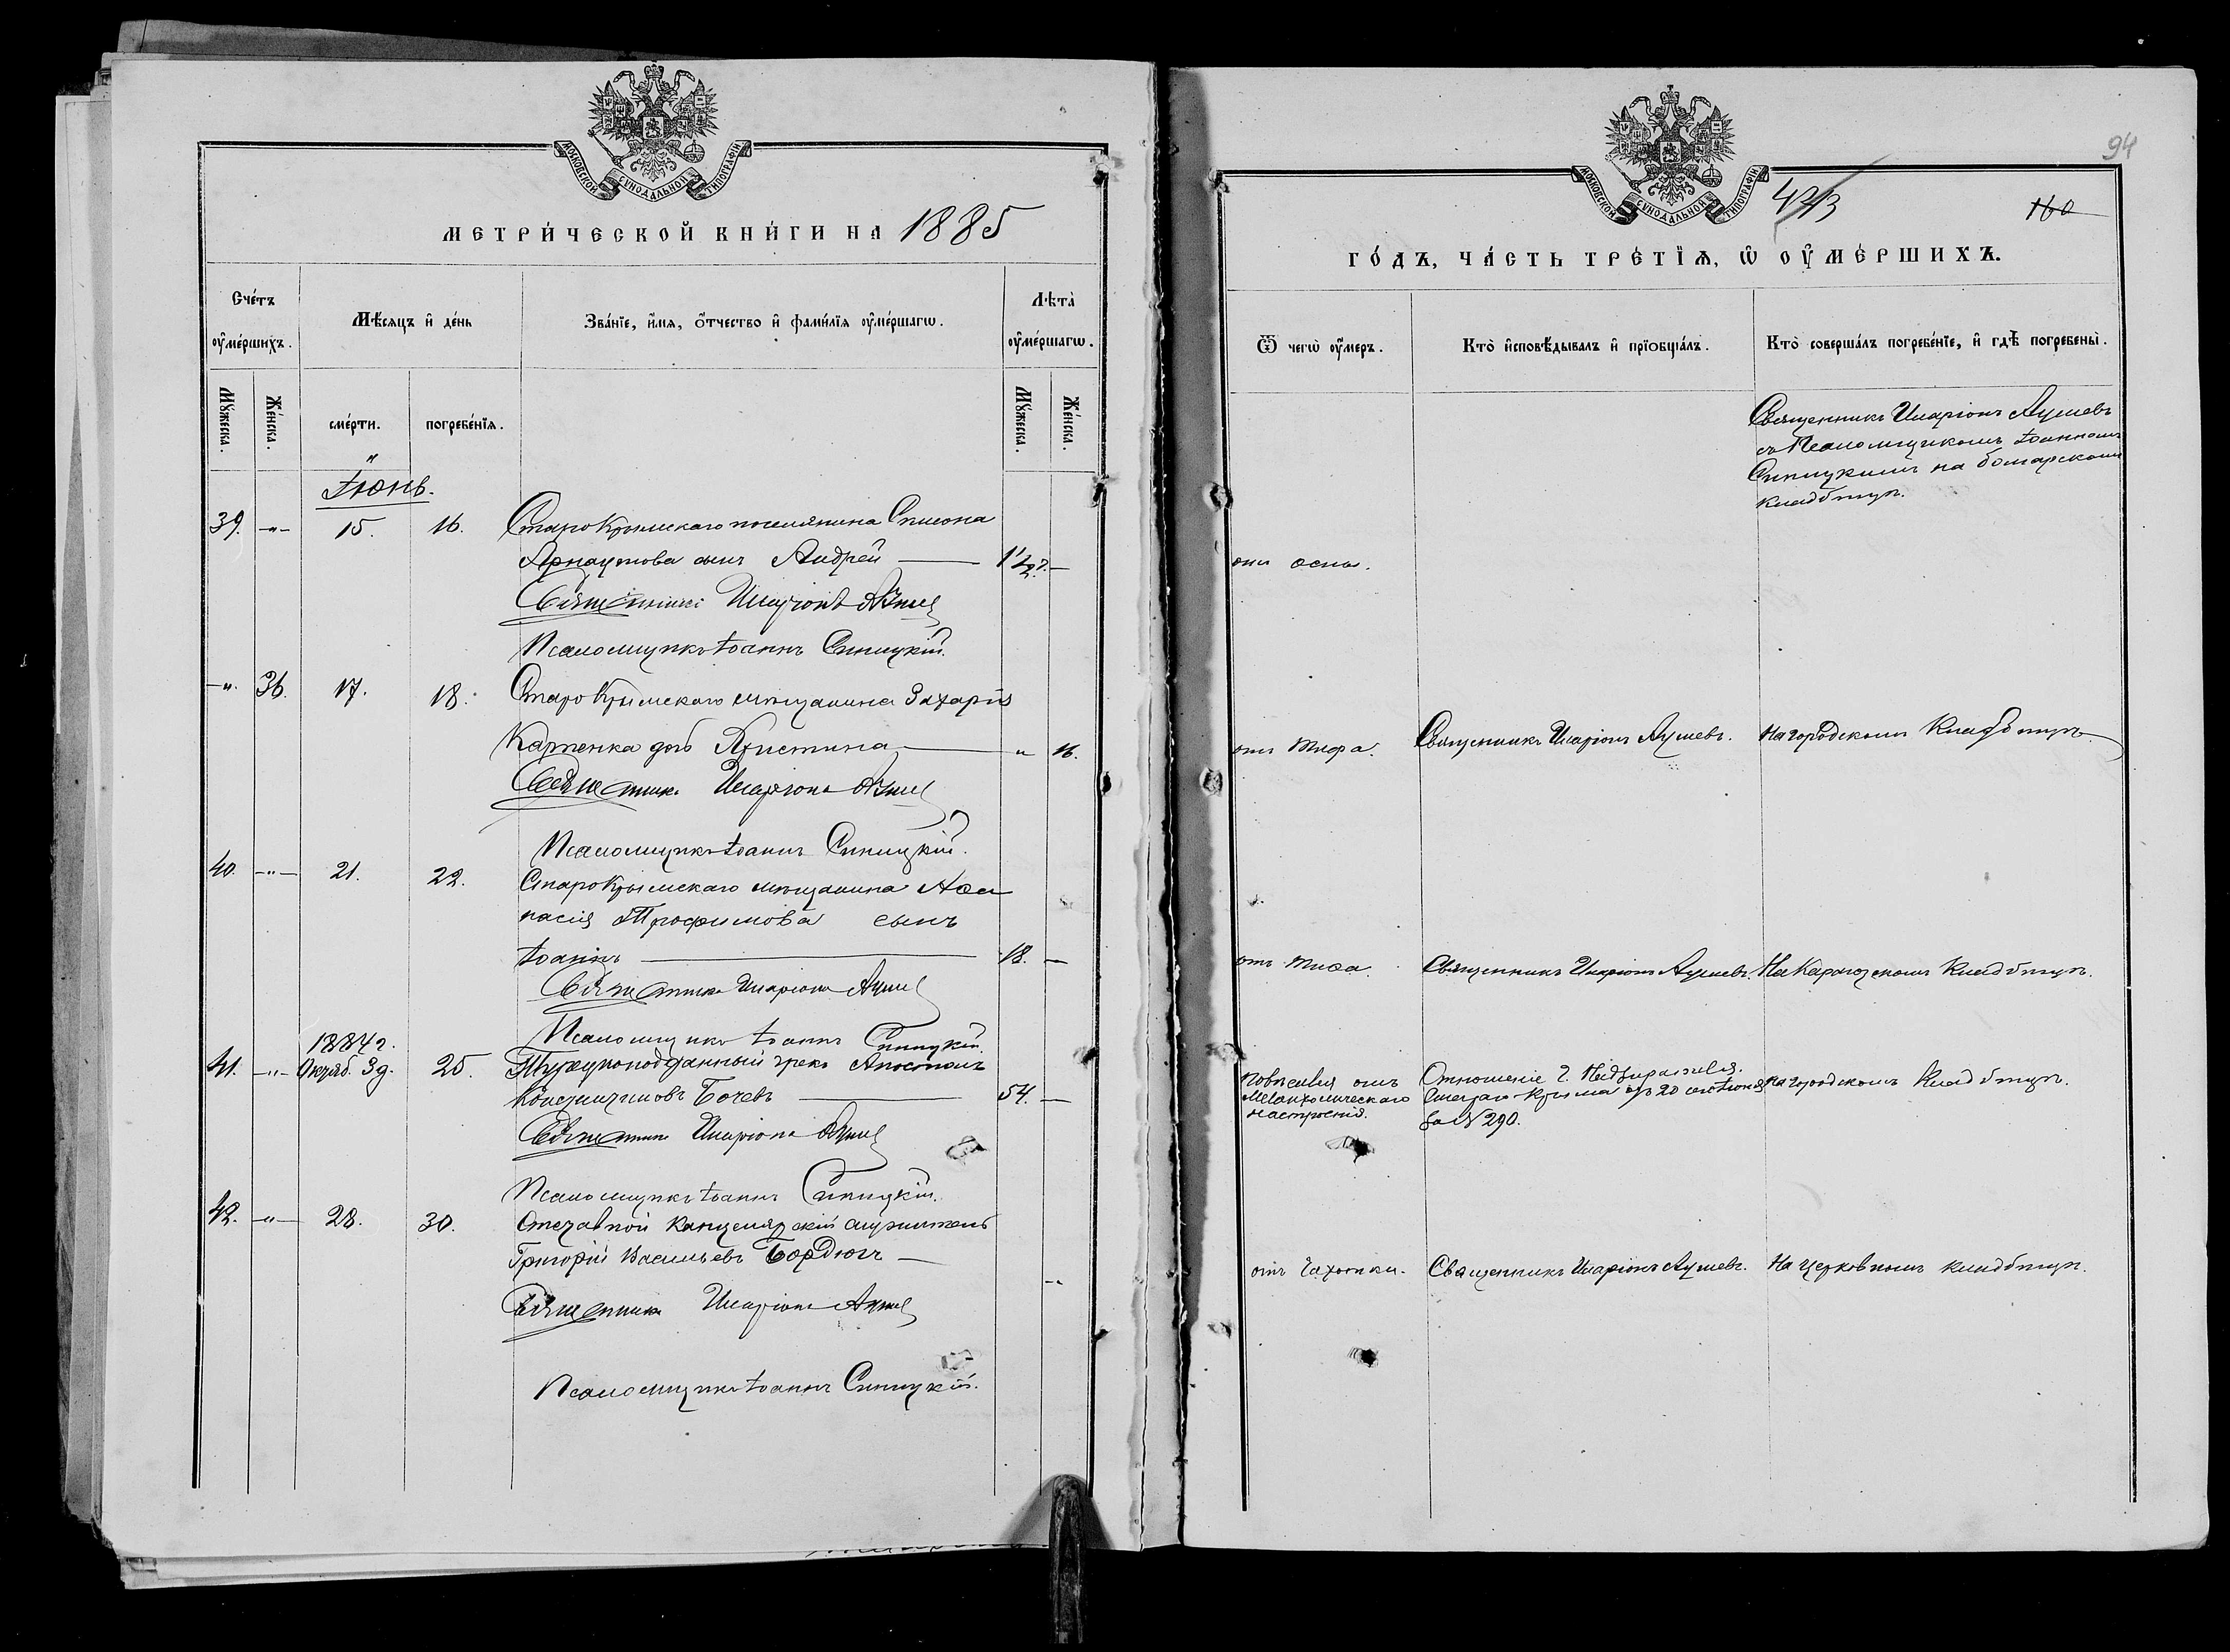 МОСКОВСКОЙ СѴНОДАЛЬНОЙ ТИПОГРАФІИ
МЕТРИ́ЧЕСКОЙ КНИ́ГИ НА 1885
Сче́тъ оу҆ме́ршихъ.
Мѣ́сяцъ и҆ де́нь
Зва́нїе, и҆́мя, ѻ҆́тчество и҆ фами́лїя оу҆ме́ршагѡ.
Лѣ́та оу҆ме́ршагѡ.
Мꙋ́жеска.
Же́нска.
сме́рти.
погребе́нїя.
Мꙋ́жеска.
Же́нска.
"
Іюнь.
39. -"- 15. 16. Старокрымскаго поселянина Симеона
Арнаутова сынъ Андрей — 1 1/2 г. —
Священникъ Иларіонъ
Псаломщикъ Іоаннъ Синицкій.
-"- 36. 17. 18. Старокрымскаго мѣщанина Захарія
дочь Христина — " 16.
Священникъ Иларіонъ
Псаломщикъ Іоаннъ Синицкій.
40. -"- 21. 22. Старокрымскаго мѣщанина Аѳа
насія Трофимова сынъ
Іоаннъ — 18. —
Священникъ Иларіонъ
Псаломщикъ Іоаннъ Синицкій
1884 г.
41. -"- Октяб. 3 д. 25. Турецкоподданный грекъ Апостолъ
Константиновъ Бочевъ — 54. —
Священникъ Иларіонъ
Псаломщикъ Іоаннъ Синицкій.
42. -"- 28. 30. Отставной Канцелярскій служитель
Григорій Васильевъ Бордюгъ —
Священникъ Иларіонъ
Псаломщикъ Іоаннъ Синицкій.
94
МОСКОВСКОЙ СѴНОДАЛЬНОЙ ТИПОГРАФІИ
160
ГО́ДЪ, ЧА́СТЬ ТРЕ́ТЇѦ, Ѡ҆ ОУ҆МЕ́РШИХЪ.
Ѿ чегѡ̀ оу҆́меръ.
Кто̀ и҆сповѣ́дывалъ и҆ прїобща́лъ.
Кто̀ соверша́лъ погребе́нїе, и҆ гдѣ̀ погребены̀.
Священникъ Иларіонъ
съ Псаломщикомъ Іоанномъ
Синицкимъ на болгарскомъ
кладбищѣ.
отъ оспы.
отъ тифа. Священникъ Иларіонъ На городскомъ Кладбищѣ.
отъ тифа. Священникъ Иларіонъ На Карагозскомъ Кладбищѣ.
повѣсился отъ
Меланхолическаго
настроенія.
Отношеніе Г. Надзирателя
Стараго-Крыма отъ 20 сего Іюня
за № 290.
на городскомъ Кладбищѣ.
отъ Чахотки. Священникъ Иларіонъ На церковномъ кладбищѣ.